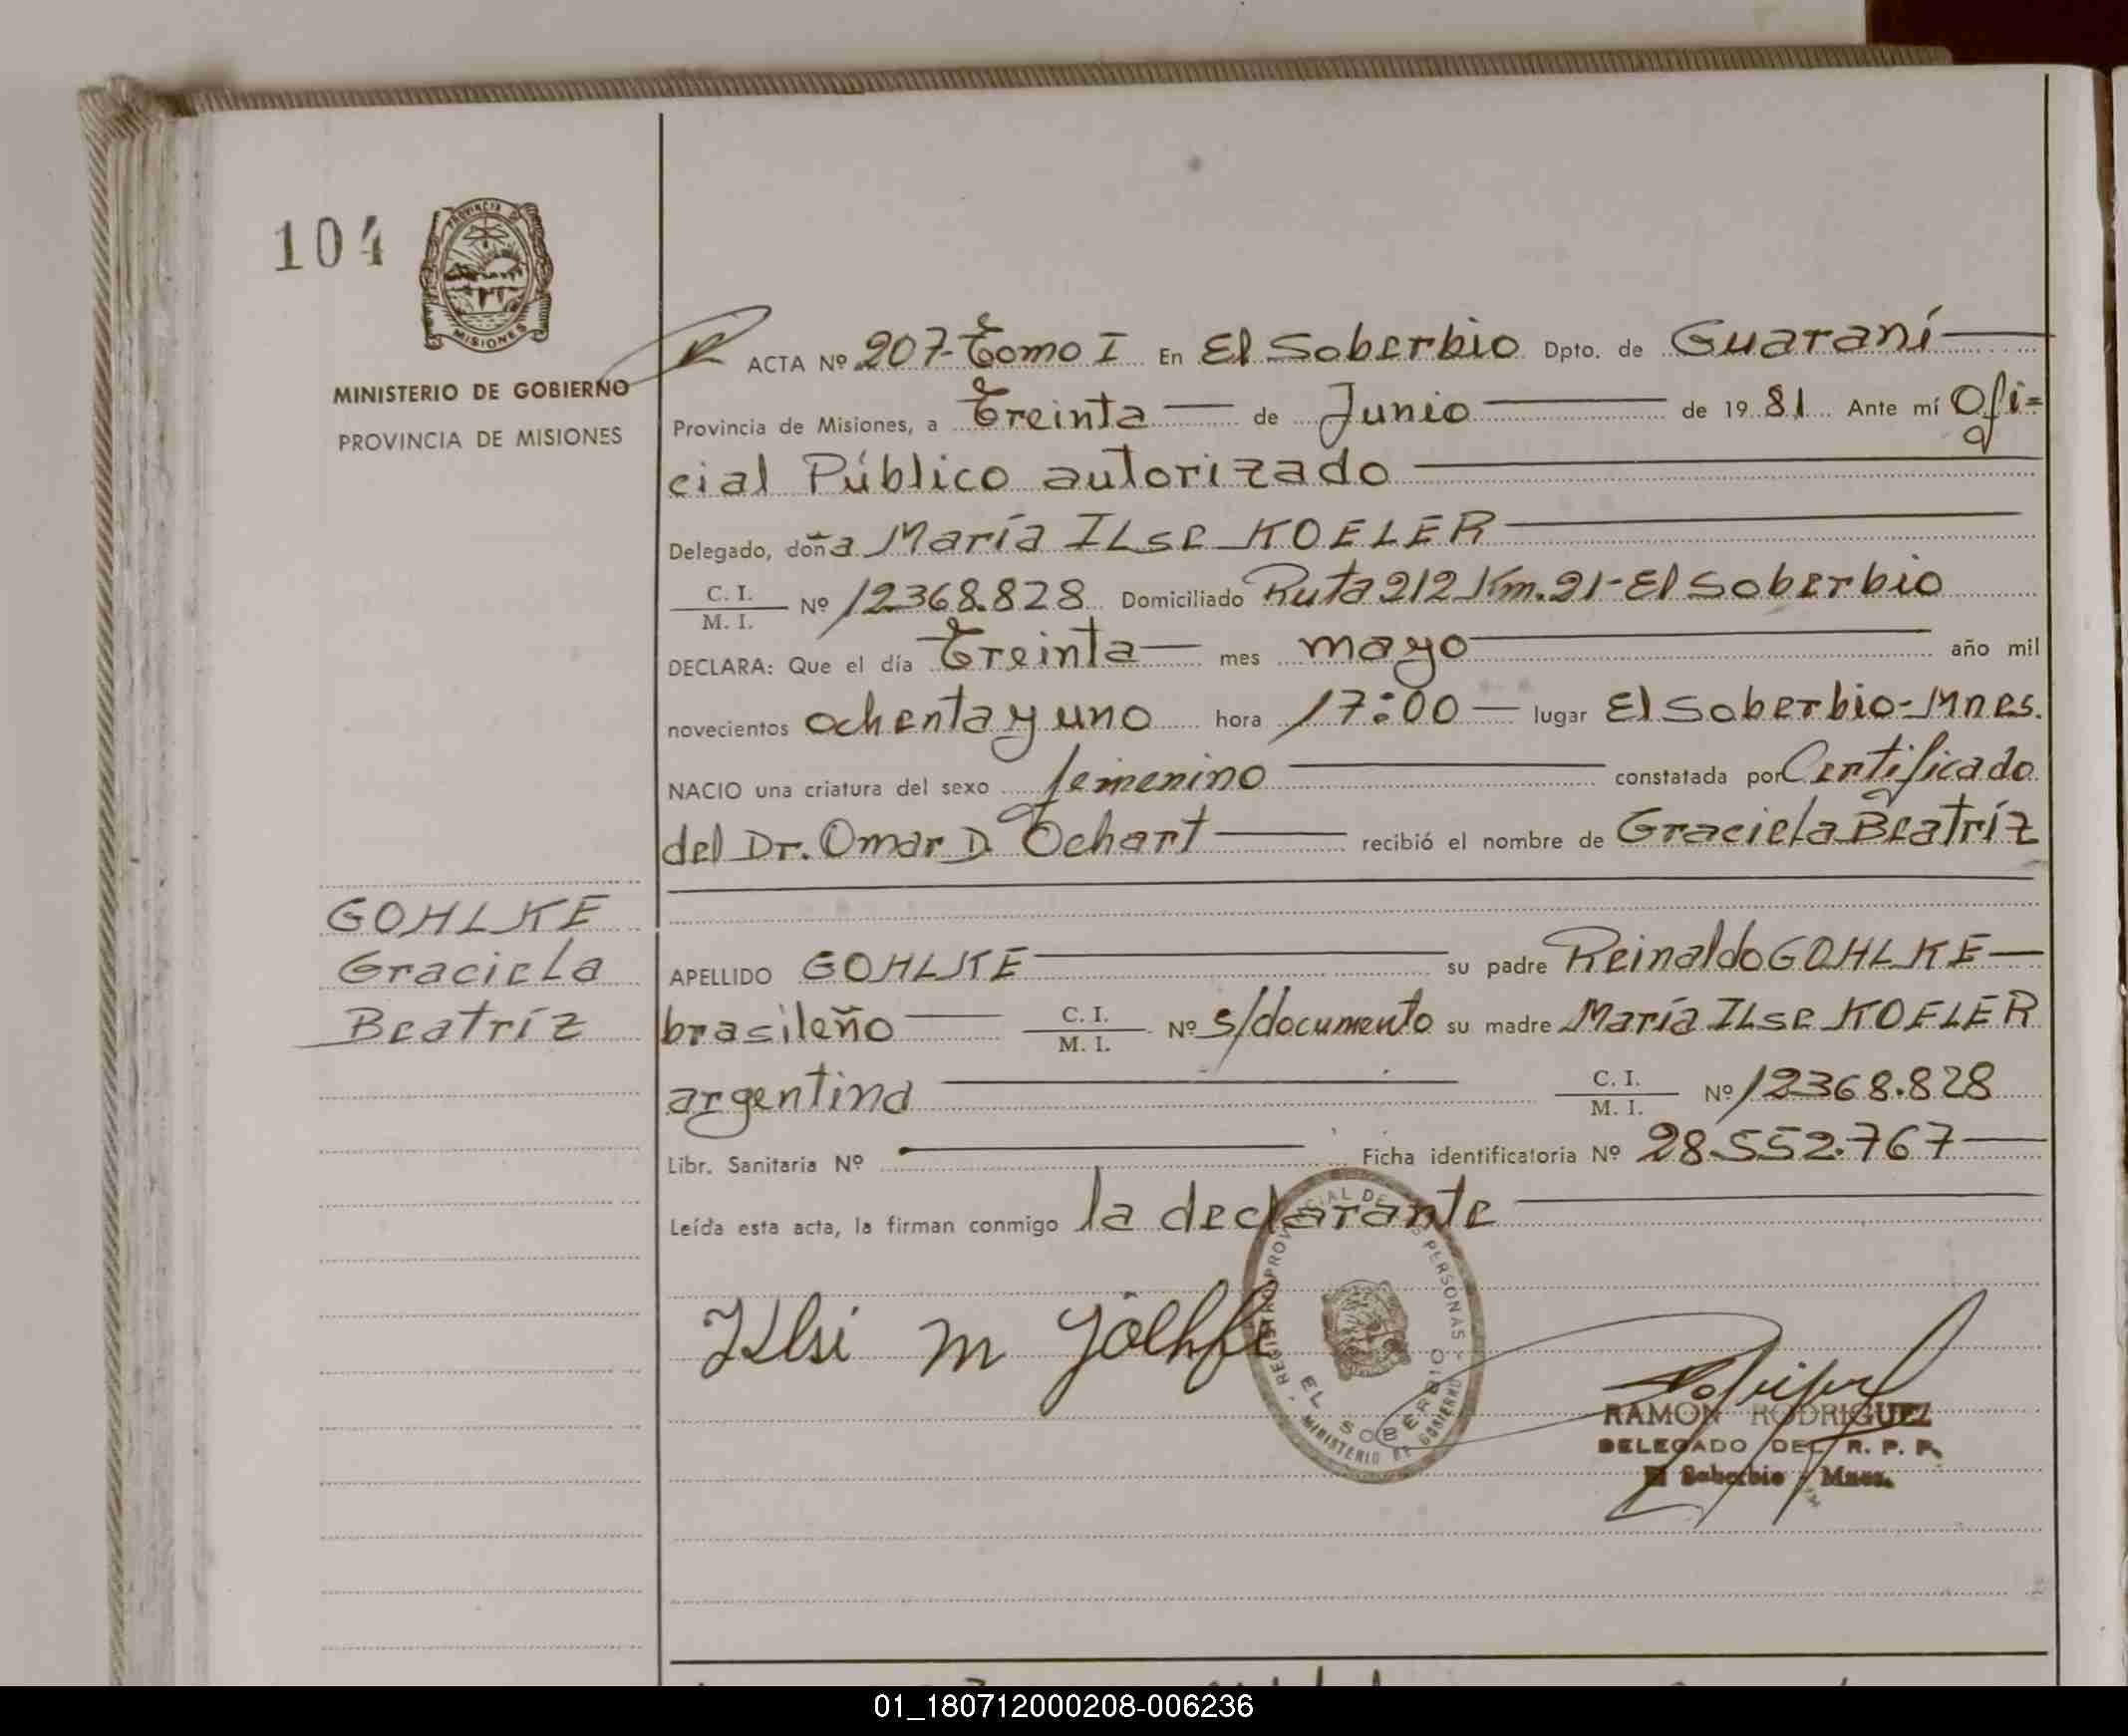 104
PROVINCIA DE
MISIONES
MINISTERIO DE GOBIERNO
PROVINCIA DE MISIONES
GOHLKE
Graciela
Beatríz
ACTA Nº 207-Tomo I En El Soberbio Dpto. de Guaraní
Provincia de Misiones, a Treinta de Junio de 1981 Ante mí Ofi=
cial Público autorizado
Delegado, doña María ILse KOELER
C. I.
M. I. Nº 12368.828 Domiciliado Ruta 212 Km. 21-El Soberbio
DECLARA: Que el día Treinta mes mayo año mil
novecientos ochenta y uno hora 17:00 lugar El Soberbio-Mnes.
NACIO una criatura del sexo femenino constatada por Certificado
del Dr. Omar D. Ochart recibió el nombre de Graciela Beatríz
APELLIDO GOHLKE su padre Reinaldo GOHLKE
brasileño C. I. M. I. Nº s/documento su madre María ILse KOELER
argentina C. I. M. I. Nº 12368.828
Libr. Sanitaria Nº Ficha identificatoria Nº 28.552.767
Leída esta acta, la firman conmigo la declarante
REGISTRO PROVINCIAL DE LAS PERSONAS
EL SOBERBIO
MINISTERIO DE GOBIERNO
RAMON RODRIGUEZ
DELEGADO DEL R. P. P.
El Soberbio - Mnes.
01_180712000208-006236